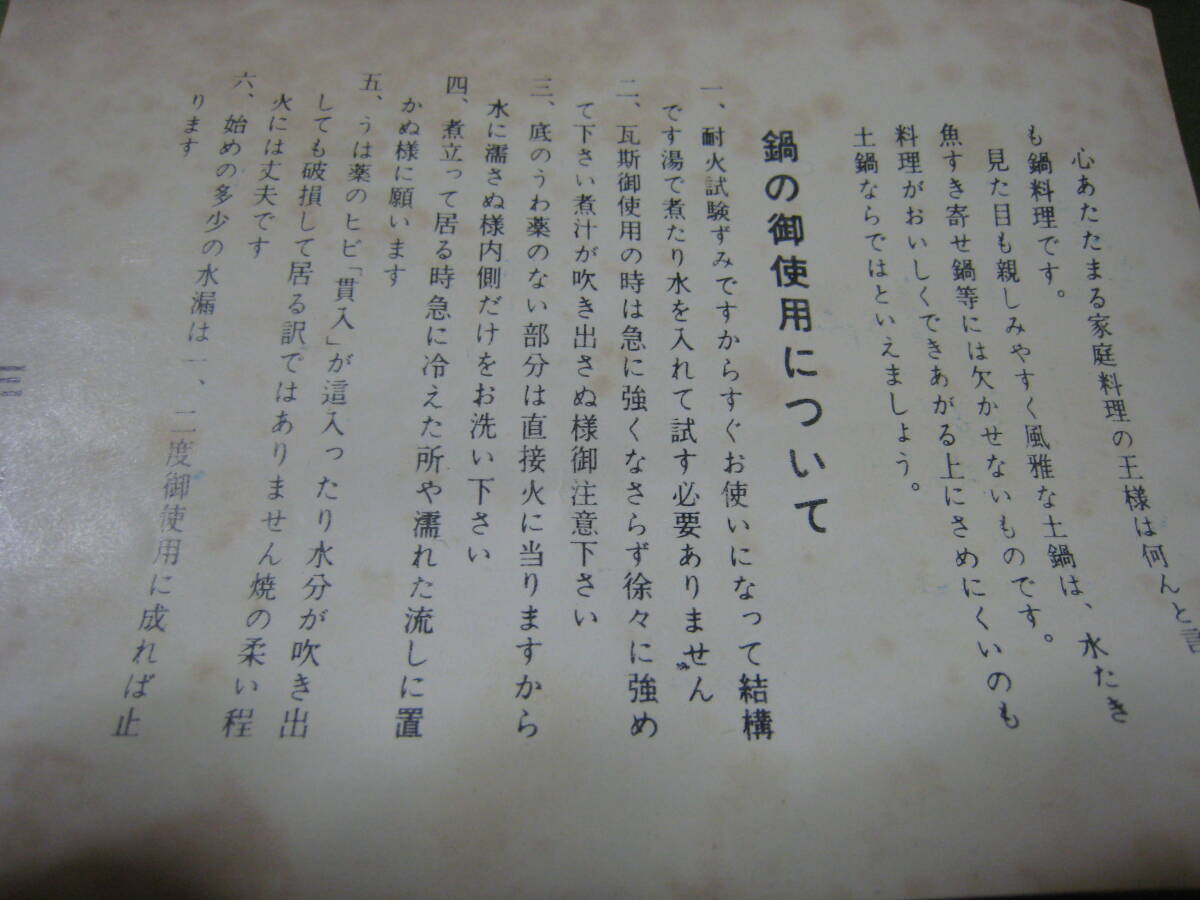 心あたたまる家庭料理の王様は何んと言
も鍋料理です。
見た目も親しみやすく風雅な土鍋は、水たき
魚すき寄せ鍋等には欠かせないものです。
料理がおいしくできあがる上にさめにくいのも
土鍋ならではといえましょう。
鍋の御使用について
一、耐火試験ずみですからすぐお使いになって結構
です湯で煮たり水を入れて試す必要ありません
二、瓦斯御使用の時は急に強くなさらず徐々に強め
て下さい煮汁が吹き出さぬ様御注意下さい
三、底のうわ薬のない部分は直接火に当りますから
水に濡さぬ様内側だけをお洗い下さい
四、煮立って居る時急に冷えた所や濡れた流しに置
かぬ様に願います
五、うは薬のヒビ「貫入」が這入ったり水分が吹き出
しても破損して居る訳ではありません焼の柔い程
火には丈夫です
六、始めの多少の水漏は一、二度御使用に成れば止
ります